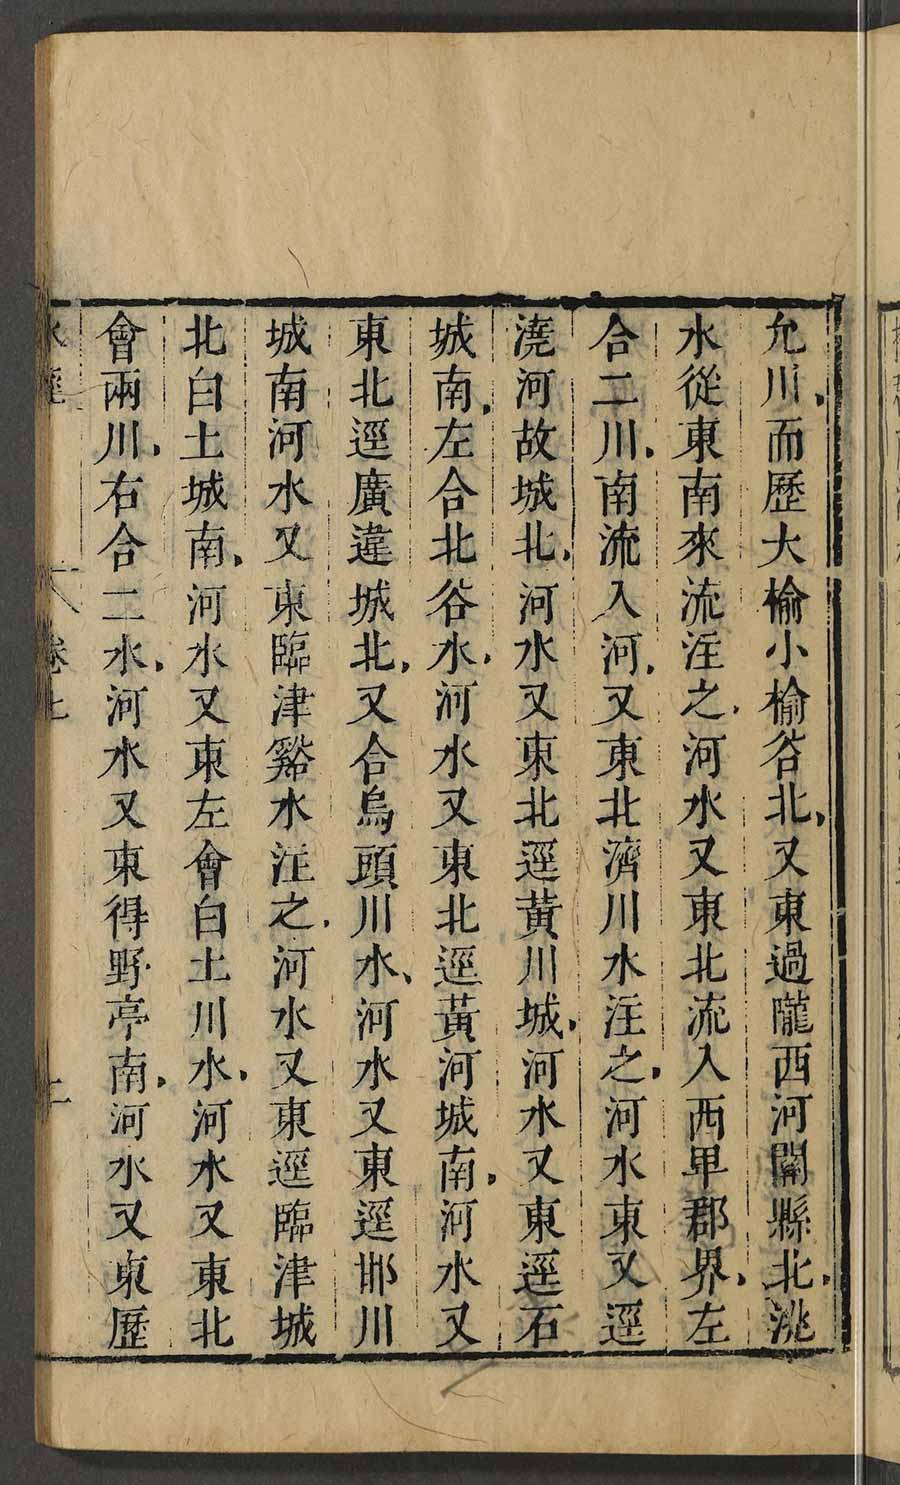 允川、而歷大榆小榆谷北、又東過隴西河關縣北、洮
水從東南來流注之、河水又東北流入西𤰞郡界、左
合二川、南流入河、又東北濟川水注之、河水東又逕
澆河故城北、河水又東北逕黃川城、河水又東逕石
城南、左合北谷水、河水又東北逕黃河城南、河水又
東北逕廣違城北、又合烏頭川水、河水又東逕邯川
城南河水又東臨津谿水注之、河水又東逕臨津城
北白土城南、河水又東左會白土川水、河水又東北
會兩川、右合二水、河水又東得野亭南、河水又東歷